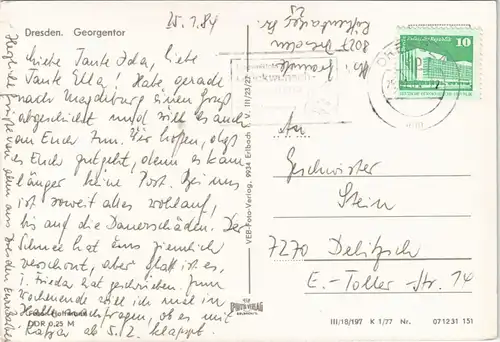 25.1.84
Dresden. Georgentor
Liebe Tante Ida, liebe
Tante Ella! Habe gerade
nach Magdeburg einen Gruß
abgeschickt und will es auch
an Euch tun. Wir hoffen, daß
es Euch gut geht, denn es kam
länger keine Post. Bei uns
ist soweit alles wohlauf,
bis auf die Dauerschäden. Der
Schnee hat uns ziemlich
verschont, aber glatt ist es.
Frieda hat geschrieben. Zum
Wochenende will ich mal in
Halle nachfragen, ob es mit
ab 5.2. klappt.
Herzliche Grüße von
aus Dresden
8027 Dresden
25
DRESDEN
10
An
Geschwister
Stein
7270 Delitzsch
E.-Toller-Str. 14
VEB-Foto-Verlag, 9934 Erlbach i. V. III/23/22
FOTO VERLAG
ERLBACH
DDR 0,25 M
III/18/197 K 1/77 Nr. 071231 151